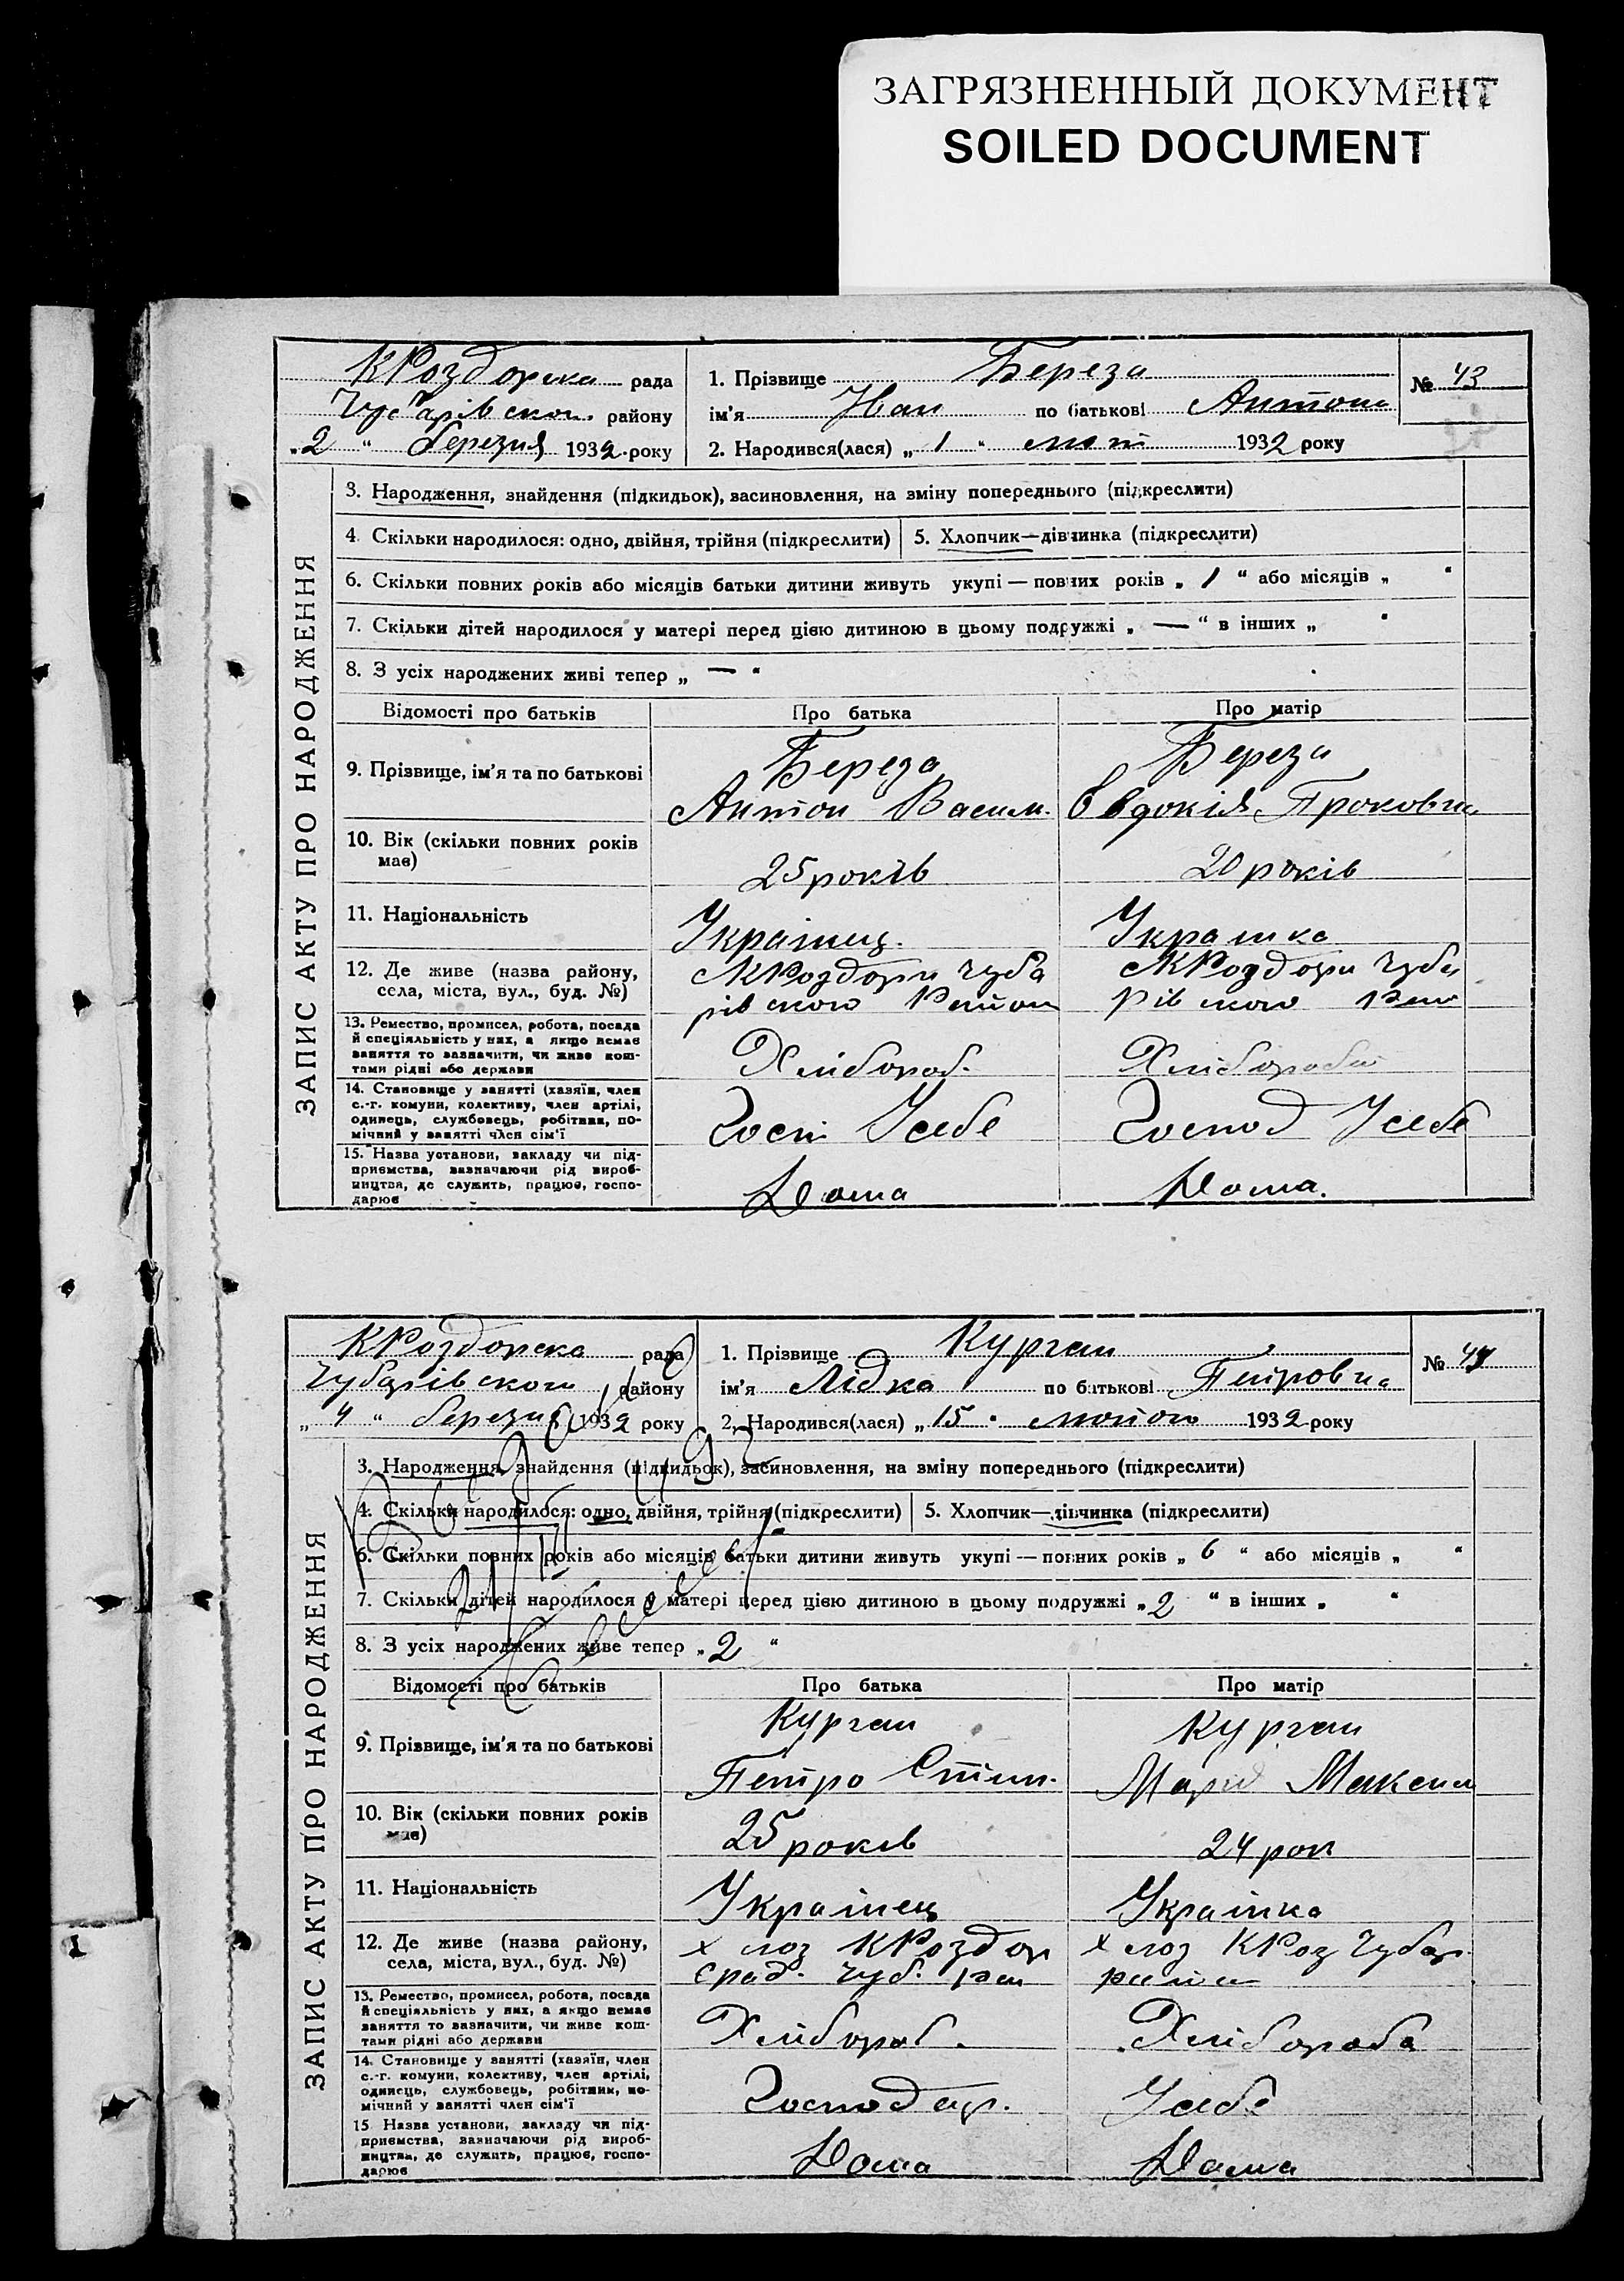 ЗАГРЯЗНЕННЫЙ ДОКУМЕНТ
SOILED DOCUMENT
КРоздорська рада
Чубарівськ. району
„2“ березня 1932 року
1. Прізвище Береза
ім'я Іван по батькові Антон
2. Народився(лася) „1“ лют 1932 року
№ 43
ЗАПИС АКТУ ПРО НАРОДЖЕННЯ
3. Народження, знайдення (підкидьок), засиновлення, на зміну попереднього (підкреслити)
4. Скільки народилося: одно, двійня, трійня (підкреслити)
5. Хлопчик—дівчинка (підкреслити)
6. Скільки повних років або місяців батьки дитини живуть укупі — повних років „1“ або місяців „ “
7. Скільки дітей народилося у матері перед цією дитиною в цьому подружжі „—“ в інших „ “
8. З усіх народжених живі тепер „—“
Відомості про батьків Про батька Про матір
9. Прізвище, ім'я та по батькові
Береза
Антон Васил.
Береза
Евдокія Проковна
10. Вік (скільки повних років має)
25 років
20 років
11. Національність
Українец.
Українка
12. Де живе (назва району,
села, міста, вул., буд. №)
с КРоздори Чуба
рівського Район
с КРоздори Чуба
рівського
13. Ремество, промисел, робота, посада
й спеціяльність у них, а якщо немає
заняття то зазначити, чи живе кош-
тами рідні або держави
Хлібороб.
Хлібороб
14. Становище у занятті (хазяїн, член
с.-г. комуни, колективу, член артілі,
одинець, службовець, робітник, по-
мічний у занятті член сім'ї
Госп Усебе
Господ Усебе
15. Назва установи, закладу чи під-
приємства, зазначаючи рід вироб-
ництва, де служить, працює, госпо-
дарює
Дома
Дома.
КРоздорська рада
Чубарівського району
„4“ березня 1932 року
1. Прізвище Курган
ім'я Лідка по батькові Петровна
2. Народився(лася) „15“ лютого 1932 року
№ 44
ЗАПИС АКТУ ПРО НАРОДЖЕННЯ
3. Народження, знайдення (підкидьок), засиновлення, на зміну попереднього (підкреслити)
4. Скільки народилося: одно, двійня, трійня (підкреслити)
5. Хлопчик—дівчинка (підкреслити)
6. Скільки повних років або місяців батьки дитини живуть укупі — повних років „6“ або місяців „ “
7. Скільки дітей народилося у матері перед цією дитиною в цьому подружжі „2“ в інших „ “
8. З усіх народжених живе тепер „2“
Відомості про батьків Про батька Про матір
9. Прізвище, ім'я та по батькові
Курган
Петро
Курган
Марія Максим
10. Вік (скільки повних років має)
25 років
24 рок
11. Національність
Українец
Українка
12. Де живе (назва району,
села, міста, вул., буд. №)
х КРоздор
срад. Чуб. рай
х КРоз Чубар.
района
13. Ремество, промисел, робота, посада
й спеціяльність у них, а якщо немає
заняття то зазначити, чи живе кош-
тами рідні або держави
Хлібороб.
Хлібороба
14. Становище у занятті (хазяїн, член
с.-г. комуни, колективу, член артілі,
одинець, службовець, робітник, по-
мічний у занятті член сім'ї
Господар.
Усебе
15 Назва установи, закладу чи під-
приємства, зазначаючи рід вироб-
ництва, де служить, працює, госпо-
дарює
Дома
Дома